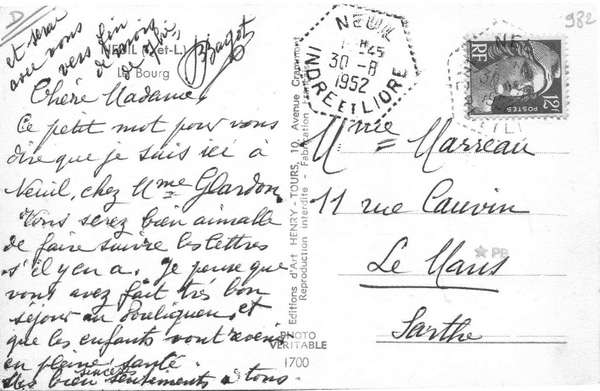 D
982
et serai
avec vous
vers fin
de mois
NEUIL (I.-et-L.)
Le Bourg
Chère Madame,
Ce petit mot pour vous
dire que je suis ici à
Neuil, chez Mme Glardon
Vous serez bien aimable
de faire suivre les lettres
s'il y en a. Je pense que
vous avez fait très bon
séjour au Pouliguen, et
que les enfants vont revenir
en pleine santé.
Mes bien sincères sentiments à tous.
NEUIL
30-8
1952
INDRE ET LOIRE
RF
POSTES
12F
Editions d'Art HENRY - TOURS, 10, Avenue
Reproduction interdite - Fabrication
PHOTO
VERITABLE
1700
Mme Marreau
11 rue Cauvin
Le Mans
Sarthe
PB